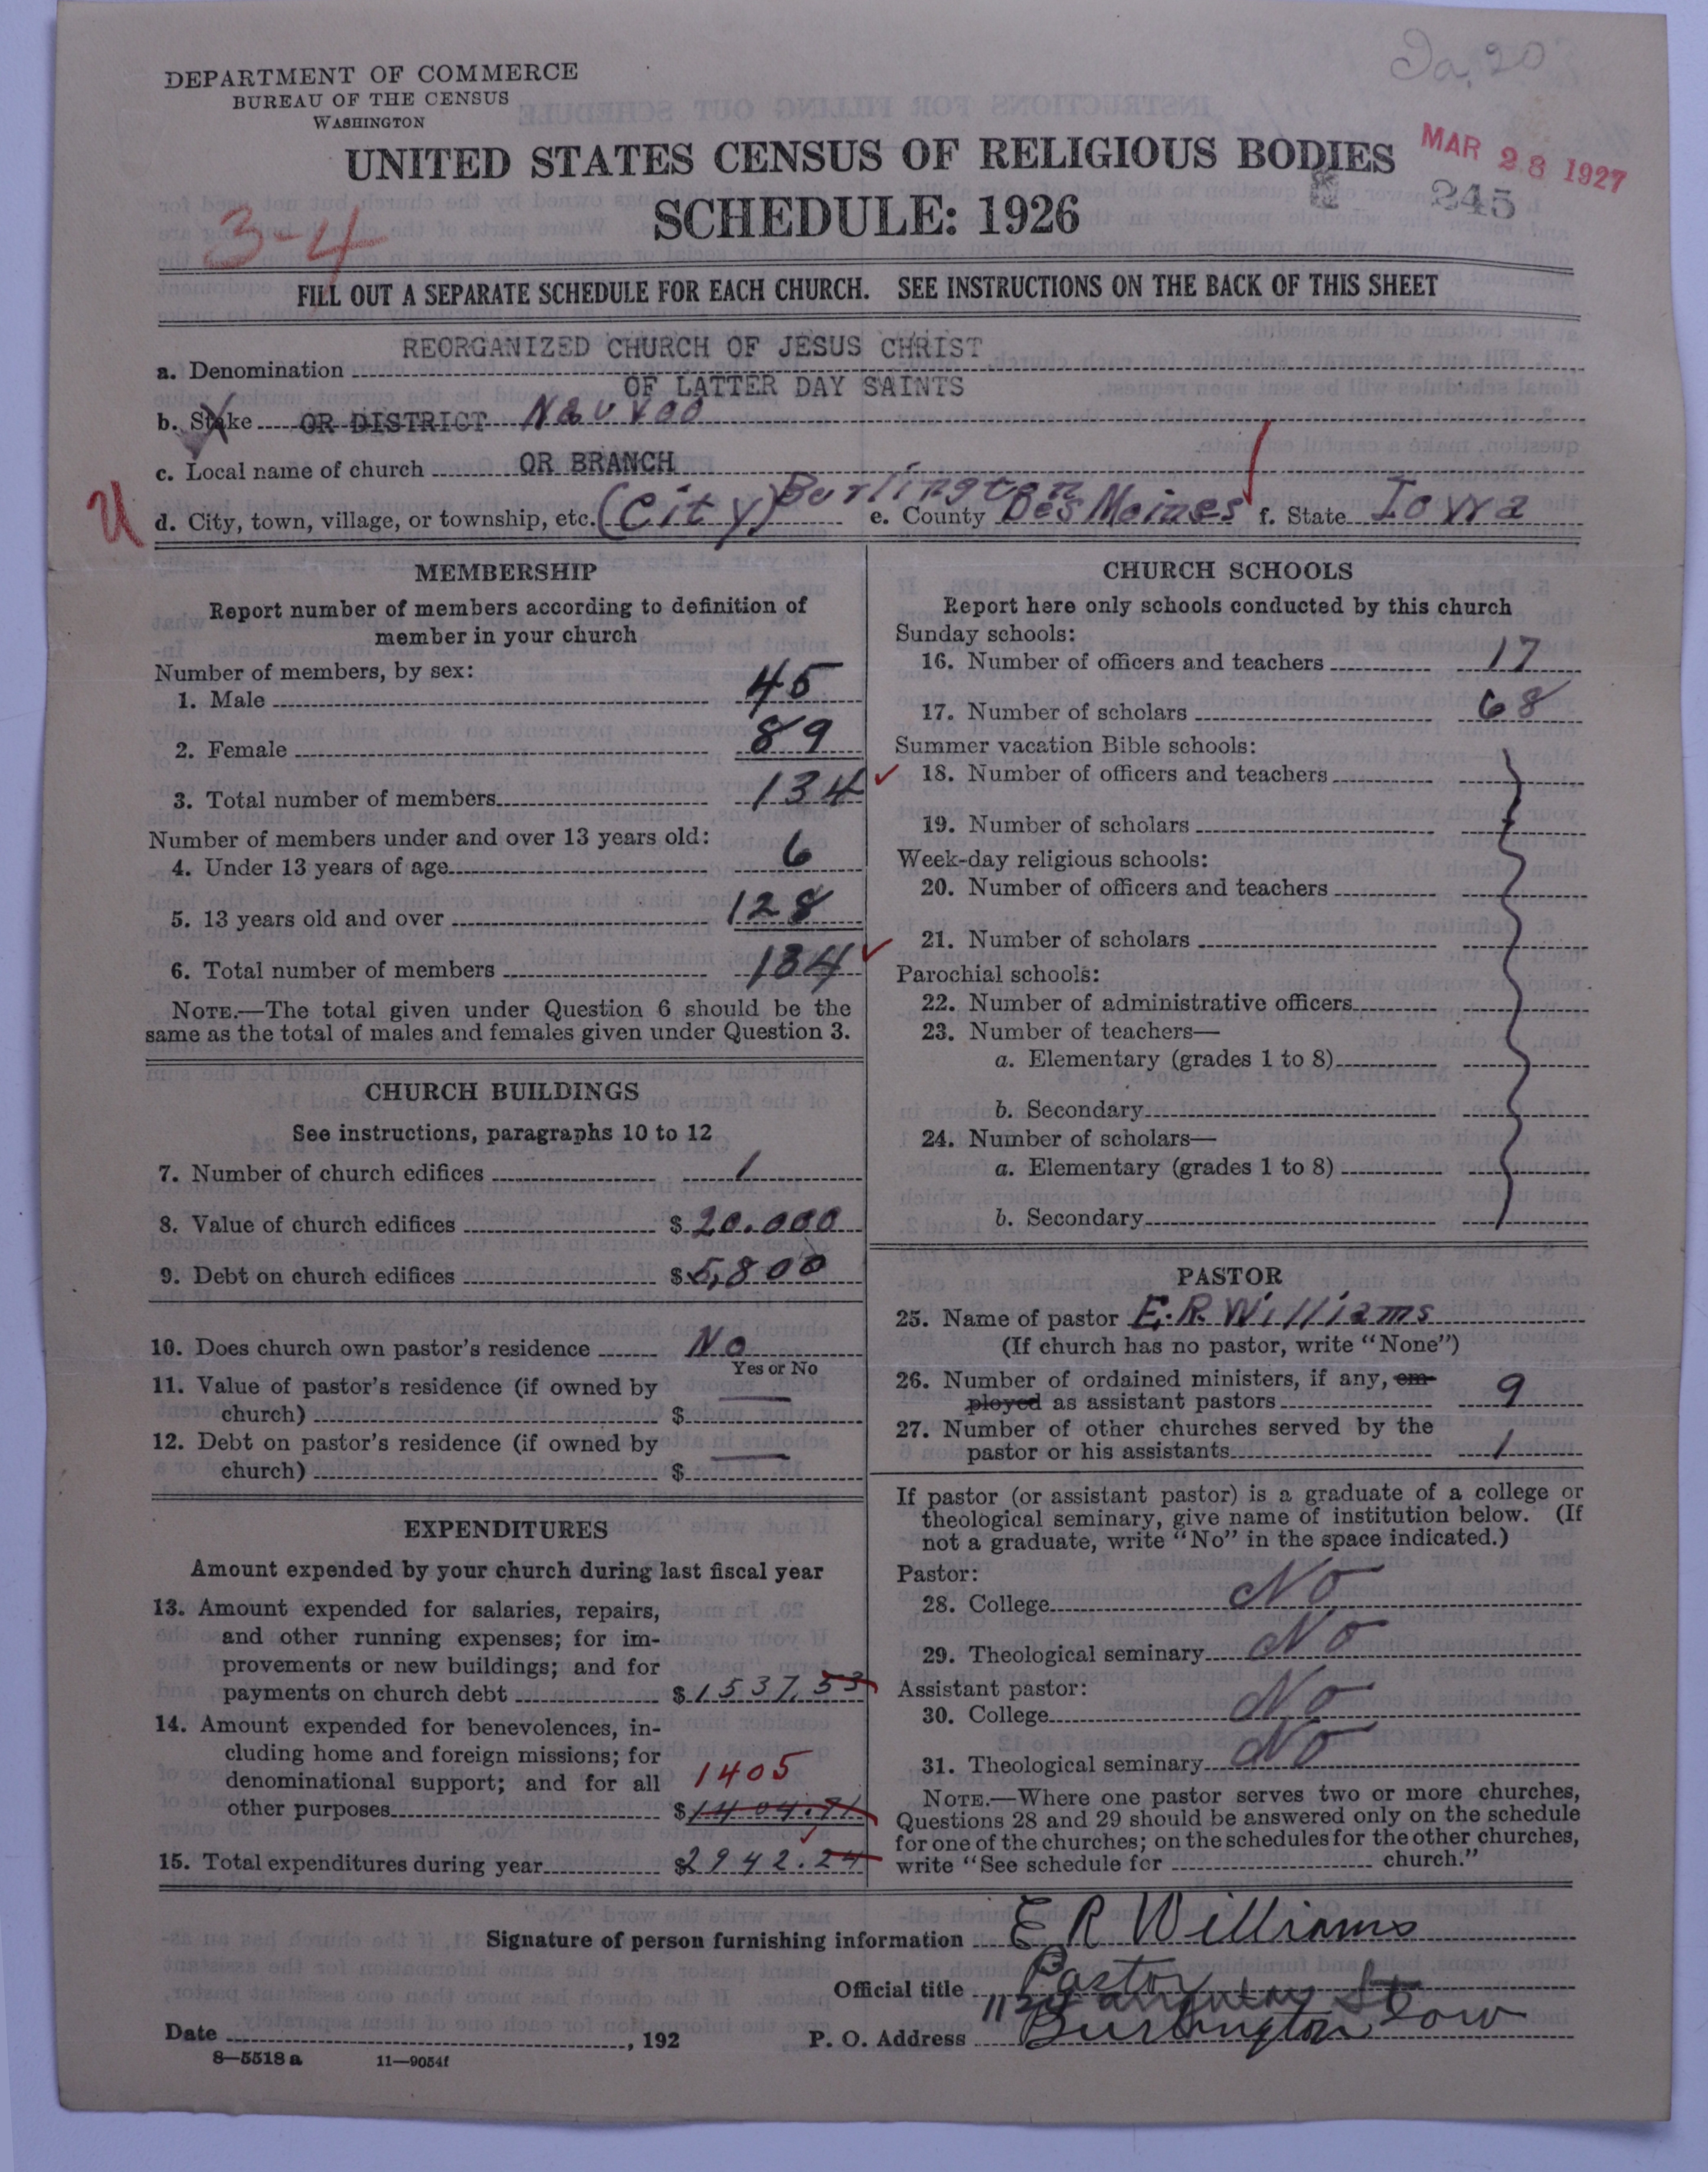 Ia. 20
DEPARTMENT OF COMMERCE
BUREAU OF THE CENSUS
WASHINGTON
MAR 28 1927
245
UNITED STATES CENSUS OF RELIGIOUS BODIES
SCHEDULE: 1926
3-4
FILL OUT A SEPARATE SCHEDULE FOR EACH CHURCH. SEE INSTRUCTIONS ON THE BACK OF THIS SHEET
a. Denomination REORGANIZED CHURCH OF JESUS CHRIST
OF LATTER DAY SAINTS
b. Stake OR DISTRICT Nauvoo
c. Local name of church OR BRANCH
U
d. City, town, village, or township, etc. (City) Burlington e. County Des Moines f. State Iowa
MEMBERSHIP
Report number of members according to definition of
member in your church
Number of members, by sex:
1. Male 45
2. Female 89
3. Total number of members 134
Number of members under and over 13 years old:
4. Under 13 years of age 6
5. 13 years old and over 128
6. Total number of members 134
NOTE.—The total given under Question 6 should be the
same as the total of males and females given under Question 3.
CHURCH BUILDINGS
See instructions, paragraphs 10 to 12
7. Number of church edifices 1
8. Value of church edifices $20.000
9. Debt on church edifices $5,800
10. Does church own pastor's residence No
Yes or No
11. Value of pastor's residence (if owned by
church) $ —
12. Debt on pastor's residence (if owned by
church) $ —
EXPENDITURES
Amount expended by your church during last fiscal year
13. Amount expended for salaries, repairs,
and other running expenses; for im-
provements or new buildings; and for
payments on church debt $1537.53
14. Amount expended for benevolences, in-
cluding home and foreign missions; for
denominational support; and for all 1405
other purposes $1404.71
15. Total expenditures during year $2942.24
CHURCH SCHOOLS
Report here only schools conducted by this church
Sunday schools:
16. Number of officers and teachers 17
17. Number of scholars 68
Summer vacation Bible schools:
18. Number of officers and teachers
19. Number of scholars
Week-day religious schools:
20. Number of officers and teachers
21. Number of scholars
Parochial schools:
22. Number of administrative officers
23. Number of teachers—
a. Elementary (grades 1 to 8)
b. Secondary
24. Number of scholars—
a. Elementary (grades 1 to 8)
b. Secondary
PASTOR
25. Name of pastor E. R. Williams
(If church has no pastor, write "None")
26. Number of ordained ministers, if any, em-
ployed as assistant pastors 9
27. Number of other churches served by the
pastor or his assistants 1
If pastor (or assistant pastor) is a graduate of a college or
theological seminary, give name of institution below. (If
not a graduate, write "No" in the space indicated.)
Pastor:
28. College No
29. Theological seminary No
Assistant pastor:
30. College No
31. Theological seminary No
NOTE.—Where one pastor serves two or more churches,
Questions 28 and 29 should be answered only on the schedule
for one of the churches; on the schedules for the other churches,
write "See schedule for church."
Signature of person furnishing information E R Williams
Official title Pastor
St
Date , 192 P. O. Address Burlington Iow
8—5518 a 11—9054f